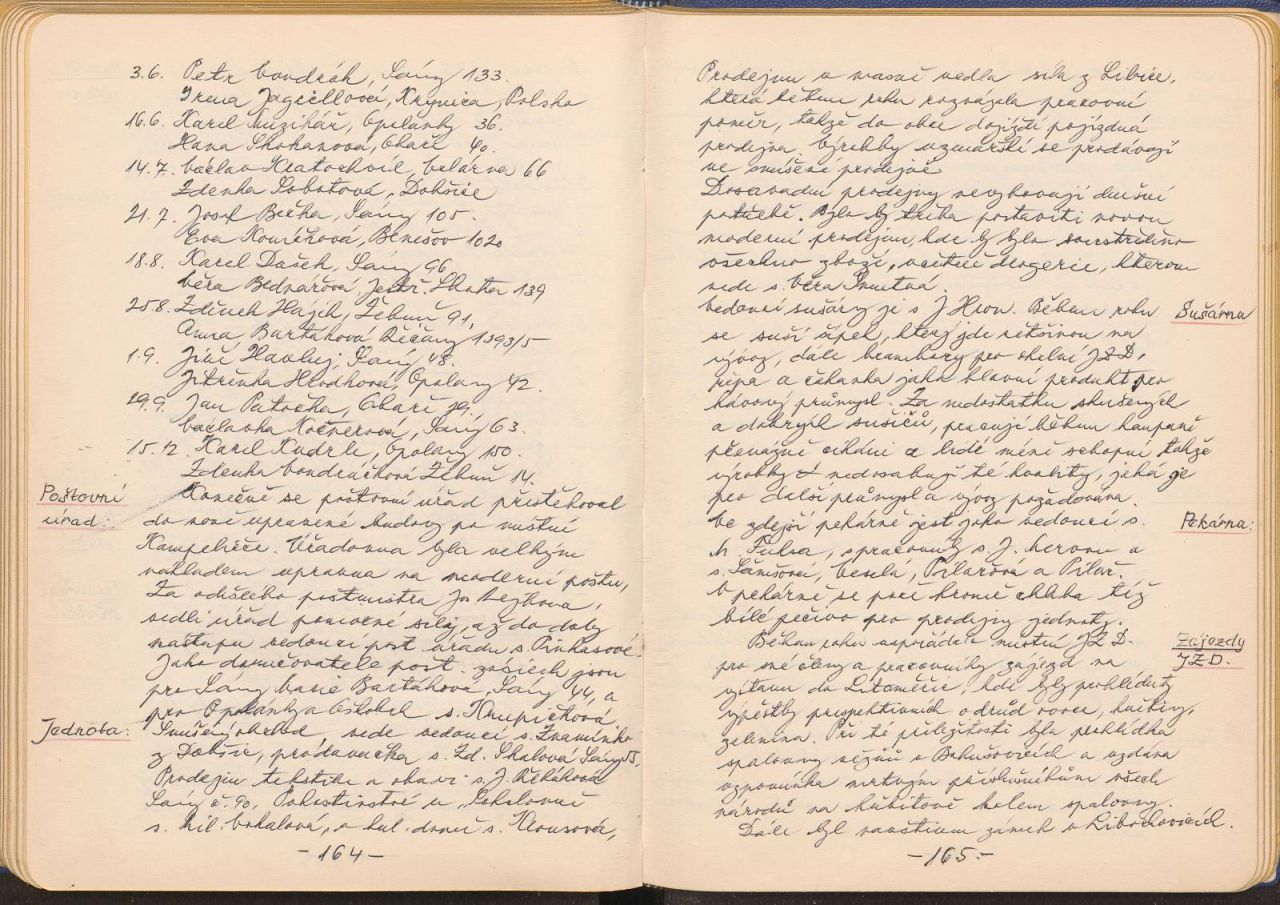 3.6. Petr Vondrák, Sány 133.
Irena Jagiellová, Krynica, Polsko
16.6. Karel Muzikář, Opolánky 36.
Hana Skohanová, Oháří 40.
14.7. Václav Kratochvíl, Volárna 66
Zdenka Sobotová, Dobšice
21.7. Josef Bečka, Sány 105.
Eva Kouříková, Benešov 1020
18.8. Karel Dašek, Sány 96,
Věra Bednářová, Jestř. Lhota 139
25.8. Zdeněk Hájek, Žehuň 91,
Anna Bartáková Říčany 1393/5
1.9. Jiří Havluj, Sány 48.
Jitřenka Hlodková, Opolany 42.
29.9. Jan Patočka, Ohaří 29,
Václavka Nočnerová, Sány 63.
15.12. Karel Kudrle, Opolany 150.
Zdenka Vondráčková Žehuň 14.
Poštovní
úřad:
Konečně se poštovní úřad přistěhoval
do nově upravené budovy po místní
Kampeličce. Úřadovna byla velkým
nákladem upravena na moderní poštu,
Za odešlého poštmistra
vedli úřad pomocné síly, až do doby
nástupu vedoucí pošt. úřadu s. Pinkasové.
Jako doručovatelé pošt. zásilek jsou
pro Sány Bartáková, Sány 44, a
pro Opolánky a s. Krupičková.
Jednota:
Smíšený obchod, vede vedoucí s. Znamínko
z Dobšic, prodavačka s. Zd. Skalová Sány 55.
Prodejnu textilu a obuvi s. J. Řeháková
Sány č. 90. Pohostinství u „Sokolovně
s. Mil. Vokálová, v kul. domě s. Krausová,
-164-
Prodejnu v masně vedla síla z Libice,
která během roku rozvázala pracovní
poměr, takže do obce dojíždí pojízdná
prodejna. Výrobky uzenářské se prodávají
ve smíšené prodejně.
Dosavadní prodejny nevyhovují dnešní
potřebě. Bylo by třeba postaviti novou
moderní prodejnu, kde by bylo soustředěno
všechno zboží, včetně drogerie, kterou
vede s. Věra Smutná.
Sušárna
Vedoucí sušárny je s. J. Hron. Během roku
se suší šípek, který jde většinou na
vývoz, dále brambory pro okolní JZD,
řepa a čekanka jako hlavní produkt pro
kávový průmysl. Za nedostatku zkušených
a dobrých sušičů, pracují během kampaně
převážně cikáni a lidé méně schopní takže
výrobky nedosahují té kvality, jaká je
pro další průmysl a vývoz požadována.
Pekárna:
Ve zdejší pekárně jest jako vedoucí s.
M. Fuksa, spracovníky s. J. Červou a
s. Sámšová, Veselá, Pilařová a Pilař.
V pekárně se peče kromě chleba též
bílé pečivo pro prodejny jednoty.
Zájezdy
JZD.
Během roku uspořádalo místní JZD.
pro své členy a pracovníky zájezd na
výstavu do Litoměřic, kde byly prohlédnuty
výpěstky perspektivních odrůd ovoce, květiny,
zelenina. Při té příležitosti byla prohlídka
spalovny vězňů v Bohušovicích a vzdána
vzpomínka mrtvým příslušníkům všech
národů na hřbitově kolem spalovny.
Dále byl navštíven zámek v Libochovicích.
-165-